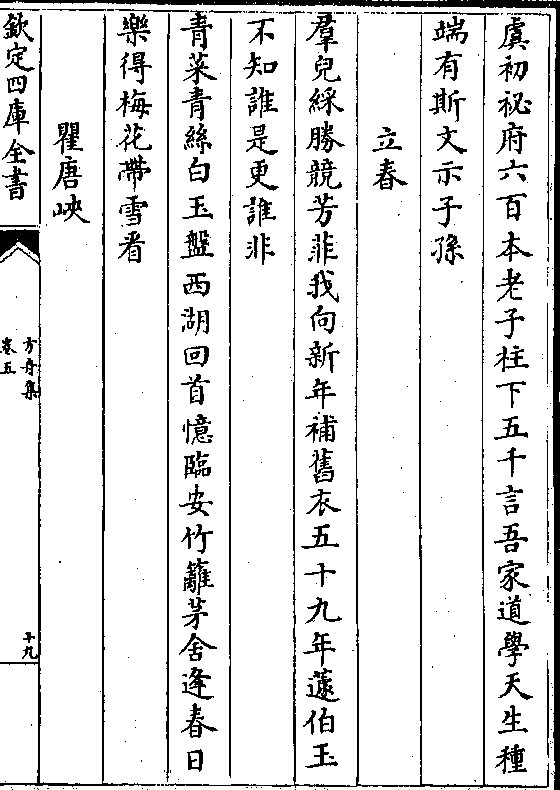 虞初祕府六百本老子柱下五千言吾家道學天生種
端有斯文示子孫
立春
羣兒綵勝競芳菲我向新年補舊衣五十九年蘧伯玉
不知誰是更誰非
青菜青絲白玉盤西湖回首憶臨安竹籬茅舍逢春日
樂得梅花帶雪看
瞿唐峽
欽定四庫全書
方舟集
卷五
十九